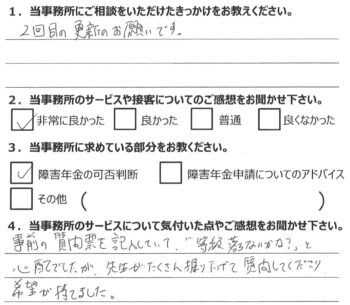 1．当事務所にご相談をいただけたきっかけをお教えください。
2回目の更新のお願いです。
2．当事務所のサービスや接客についてのご感想をお聞かせ下さい。
非常に良かった 良かった 普通 良くなかった
3．当事務所に求めている部分をお教ください。
障害年金の可否判断 障害年金申請についてのアドバイス
その他 ( )
4．当事務所のサービスについて気付いた点やご感想をお聞かせ下さい。
事前の質問票を記入していて、"等級落ちないかな?"と
心配でしたが、先生がたくさん掘り下げて質問してくださり
希望が持てました。